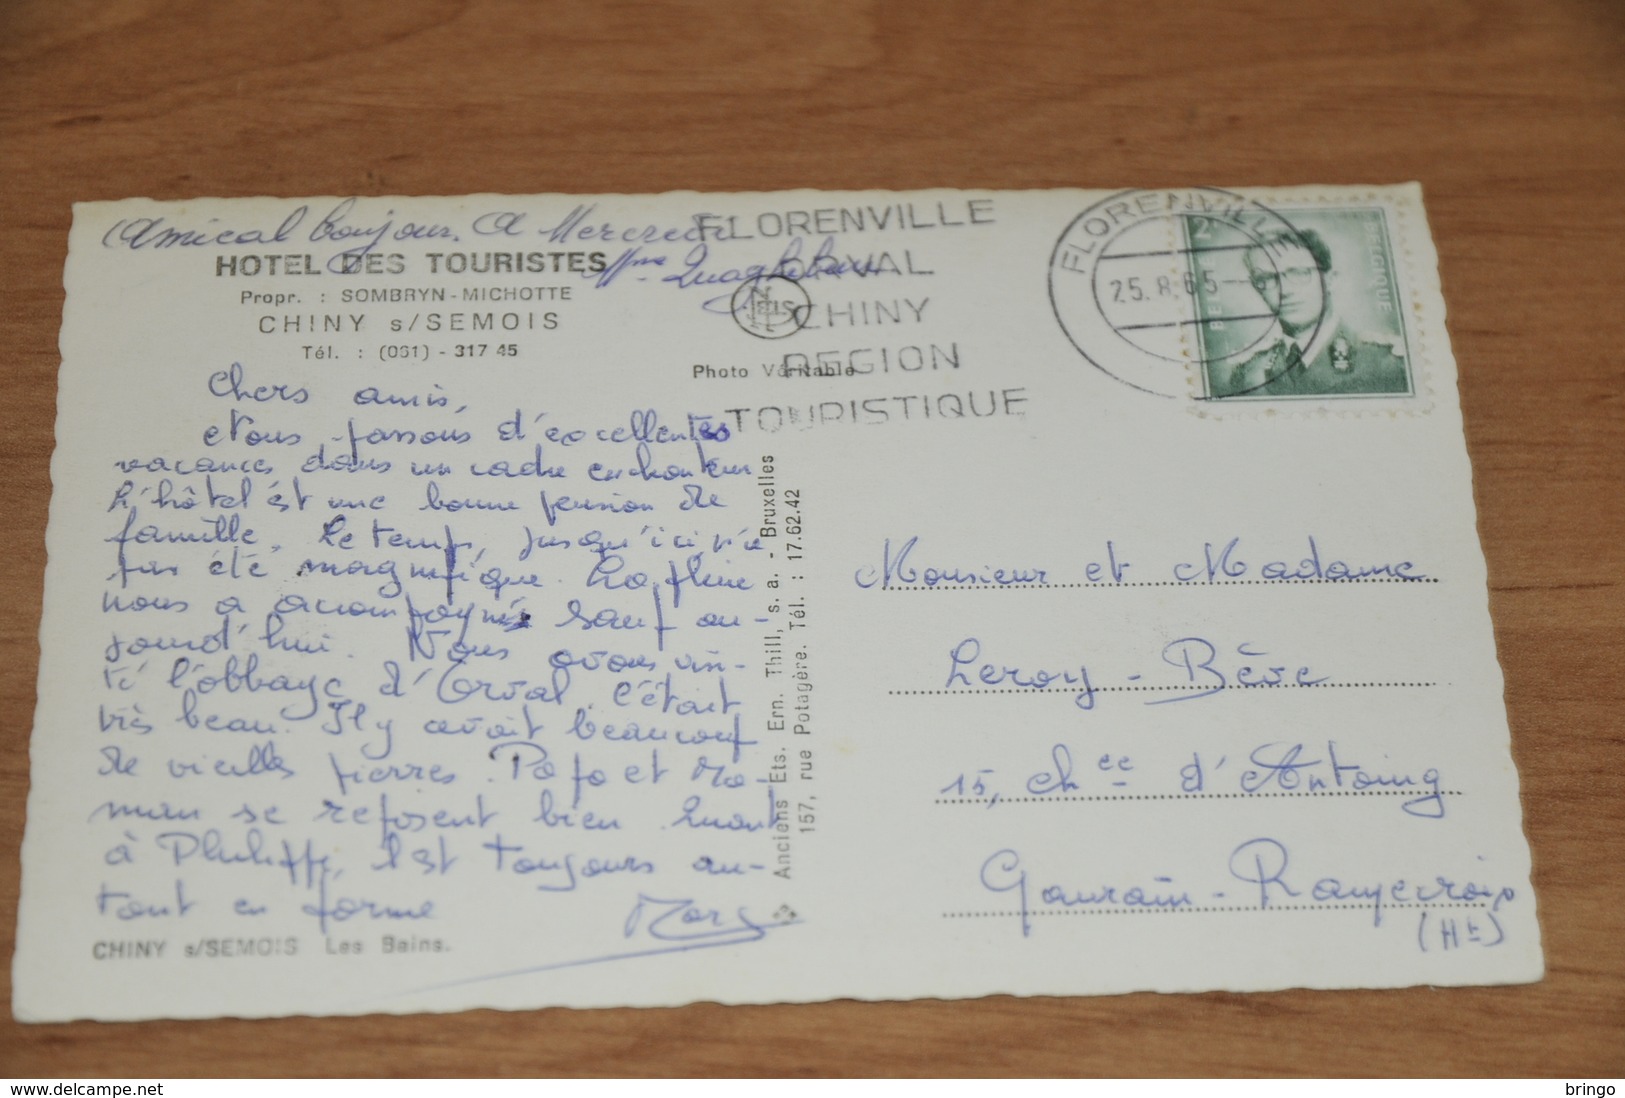 Amical bonjour. A Mercredi
Mme
HOTEL DES TOURISTES
Propr. : SOMBRYN-MICHOTTE
CHINY s/SEMOIS
Tél. : (061) - 317 45
Chers amis,
Nous passons d'excellentes
vacances dans un cadre enchanteur
L'hôtel est une bonne pension de
famille. Le temps, jusqu'ici n'a
pas été magnifique. La pluie
nous a accompagnés sauf au-
jourd'hui. Nous avons visi-
té l'abbaye d'Orval. C'était
très beau. Il y avait beaucoup
de vieilles pierres. Papa et Ma-
man se reposent bien. Quant
à Philippe, il est toujours au-
tant en forme
CHINY s/SEMOIS Les Bains.
FLORENVILLE
ORVAL
CHINY
REGION
TOURISTIQUE
Photo Véritable
Anciens Ets. Ern. Thill, s. a. - Bruxelles
157, rue Potagère. Tél. : 17.62.42
FLORENVILLE
25.8.65
2F
BELGIE
BELGIQUE
Monsieur et Madame
Leroy - Bève
15, chée d'Antoing
Gaurain - Ramecroix
(Ht)
©delcampe.net
bringo